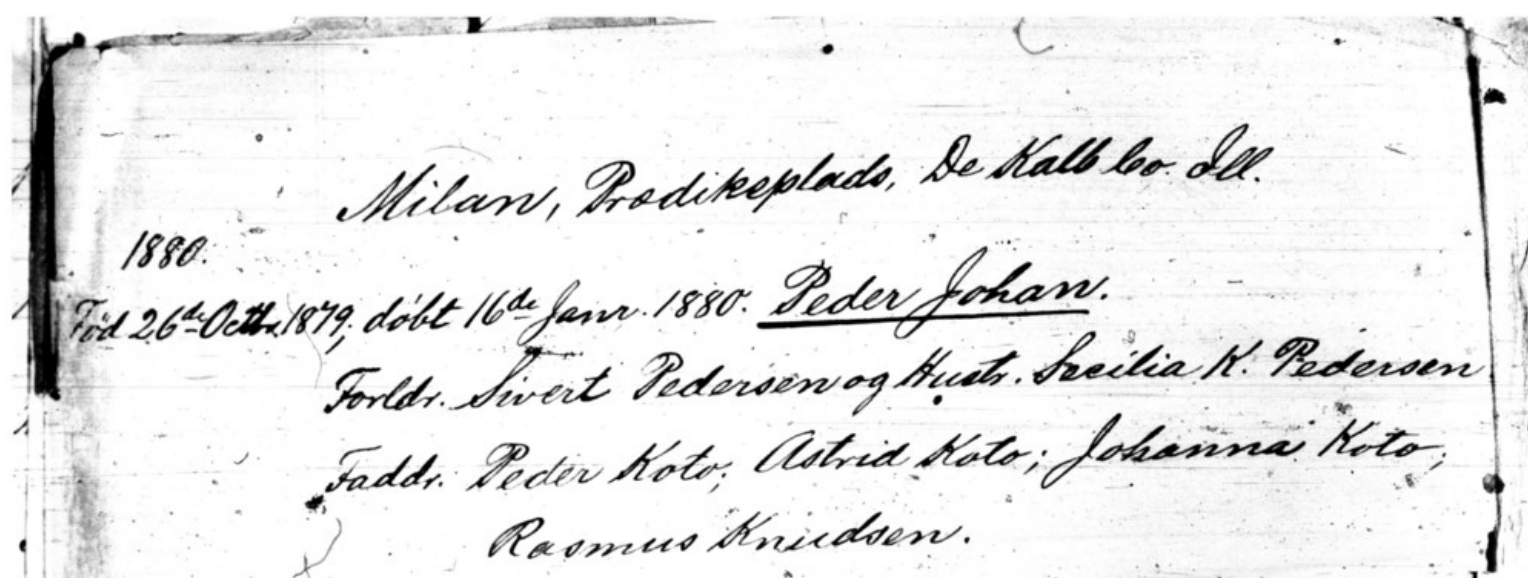 Milan, Prædikeplads, De Kalb Co. Ill.
1880.
Föd 26de Octbr. 1879, döbt 16de Janr. 1880. Peder Johan.
Forldr. Sivert Pedersen og Hustr. Secilia K. Pedersen
Faddr. Peder Koto; Astrid Koto; Johanna Koto;
Rasmus Knudsen.